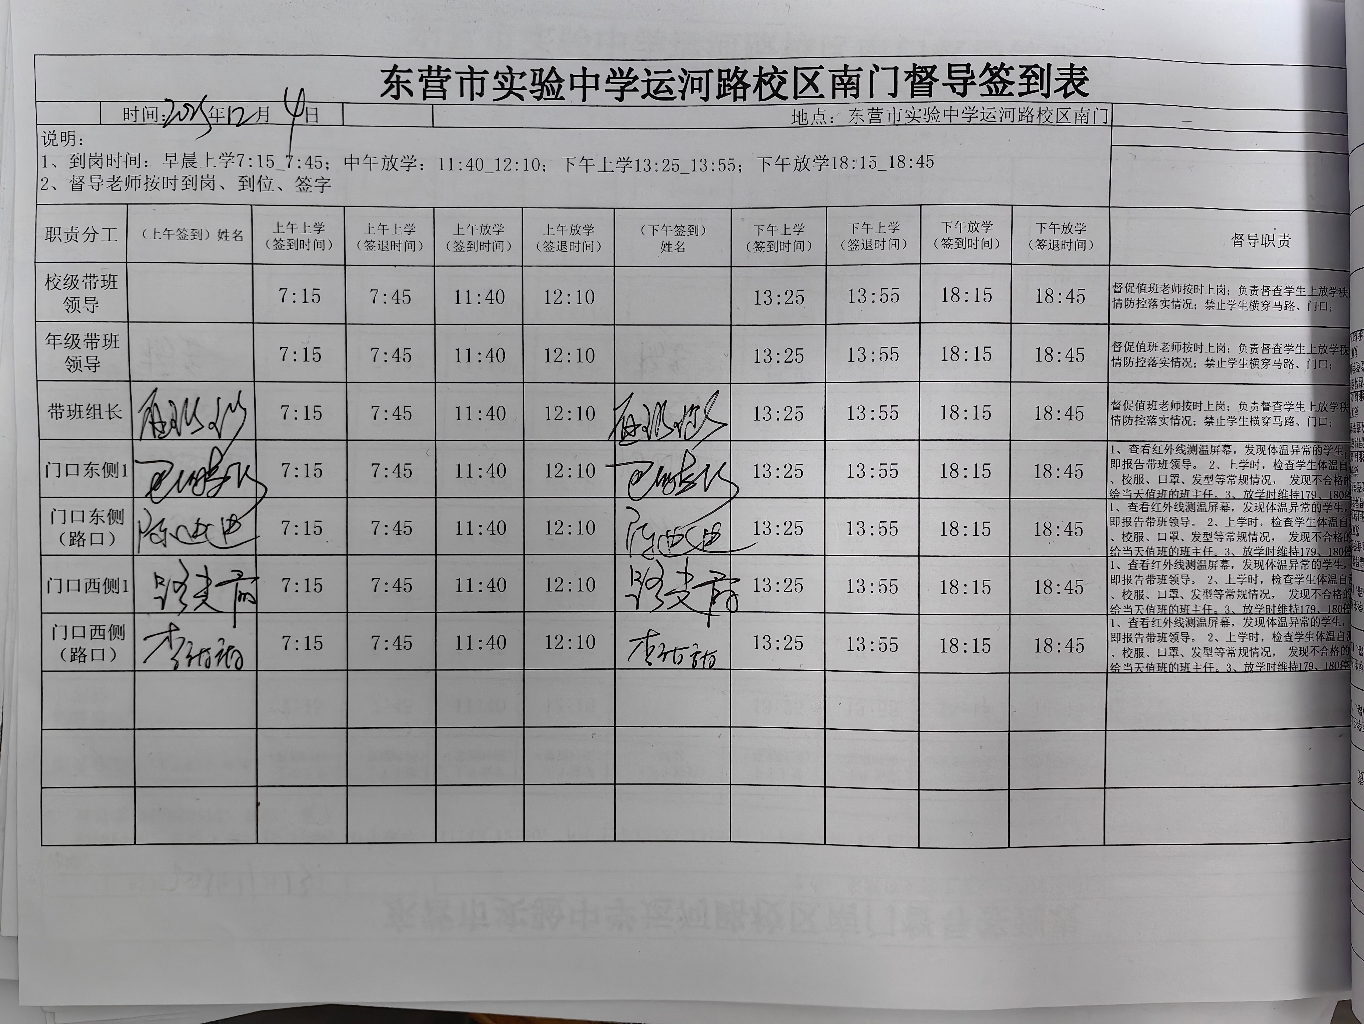 东营市实验中学运河路校区南门督导签到表
时间:2025年12月4日 地点：东营市实验中学运河路校区南门
说明:
1、到岗时间：早晨上学7:15_7:45；中午放学：11:40_12:10；下午上学13:25_13:55；下午放学18:15_18:45
2、督导老师按时到岗、到位、签字
职责分工 （上午签到）姓名 上午上学（签到时间） 上午上学（签退时间） 上午放学（签到时间） 上午放学（签退时间） （下午签到）姓名 下午上学（签到时间） 下午上学（签退时间） 下午放学（签到时间） 下午放学（签退时间） 督导职责
校级带班领导 7:15 7:45 11:40 12:10 13:25 13:55 18:15 18:45
督促值班老师按时上岗；负责督查学生上放学秩
情防控落实情况；禁止学生横穿马路、门口；
年级带班领导 7:15 7:45 11:40 12:10 13:25 13:55 18:15 18:45
督促值班老师按时上岗；负责督查学生上放学秩
情防控落实情况；禁止学生横穿马路、门口；
带班组长 7:15 7:45 11:40 12:10 13:25 13:55 18:15 18:45
督促值班老师按时上岗；负责督查学生上放学秩
情防控落实情况；禁止学生横穿马路、门口；
门口东侧1 7:15 7:45 11:40 12:10 13:25 13:55 18:15 18:45
1、查看红外线测温屏幕，发现体温异常的学生
即报告带班领导。2、上学时，检查学生体温自
、校服、口罩、发型等常规情况，发现不合格的
给当天值班的班主任。3、放学时维持179、180
门口东侧（路口） 7:15 7:45 11:40 12:10 13:25 13:55 18:15 18:45
1、查看红外线测温屏幕，发现体温异常的学生
即报告带班领导。2、上学时，检查学生体温自
、校服、口罩、发型等常规情况，发现不合格的
给当天值班的班主任。3、放学时维持179、180
门口西侧1 7:15 7:45 11:40 12:10 13:25 13:55 18:15 18:45
1、查看红外线测温屏幕，发现体温异常的学生
即报告带班领导。2、上学时，检查学生体温自
、校服、口罩、发型等常规情况，发现不合格的
给当天值班的班主任。3、放学时维持179、180
门口西侧（路口） 7:15 7:45 11:40 12:10 13:25 13:55 18:15 18:45
1、查看红外线测温屏幕，发现体温异常的学生
即报告带班领导。2、上学时，检查学生体温自
、校服、口罩、发型等常规情况，发现不合格的
给当天值班的班主任。3、放学时维持179、180